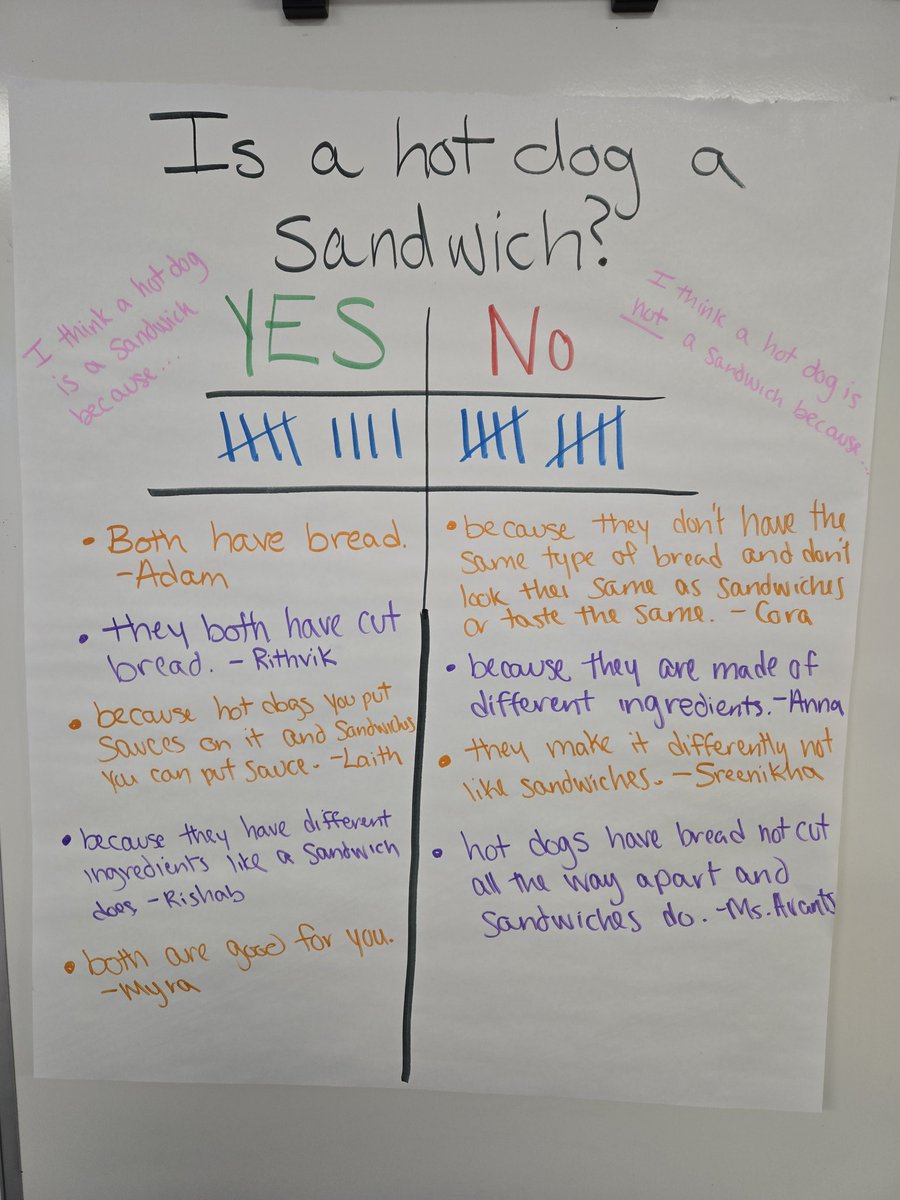 Is a hot dog a
sandwich?
I think a hot dog
is a sandwich
because...
I think a hot dog is
not a sandwich because...
YES
No
• Both have bread.
-Adam
• they both have cut
bread. - Rithvik
• because hot dogs you put
sauces on it and sandwichs
you can put sauce. -Laith
• because they have different
ingredients like a sandwich
does -Rishab
• both are good for you.
-Myra
• because they don't have the
same type of bread and don't
look ther same as sandwiches
or taste the same. - Cora
• because they are made of
different ingredients.-Anna
• they make it differently not
like sandwiches. -Sreenikha
• hot dogs have bread not cut
all the way apart and
sandwiches do. -Ms. Avants